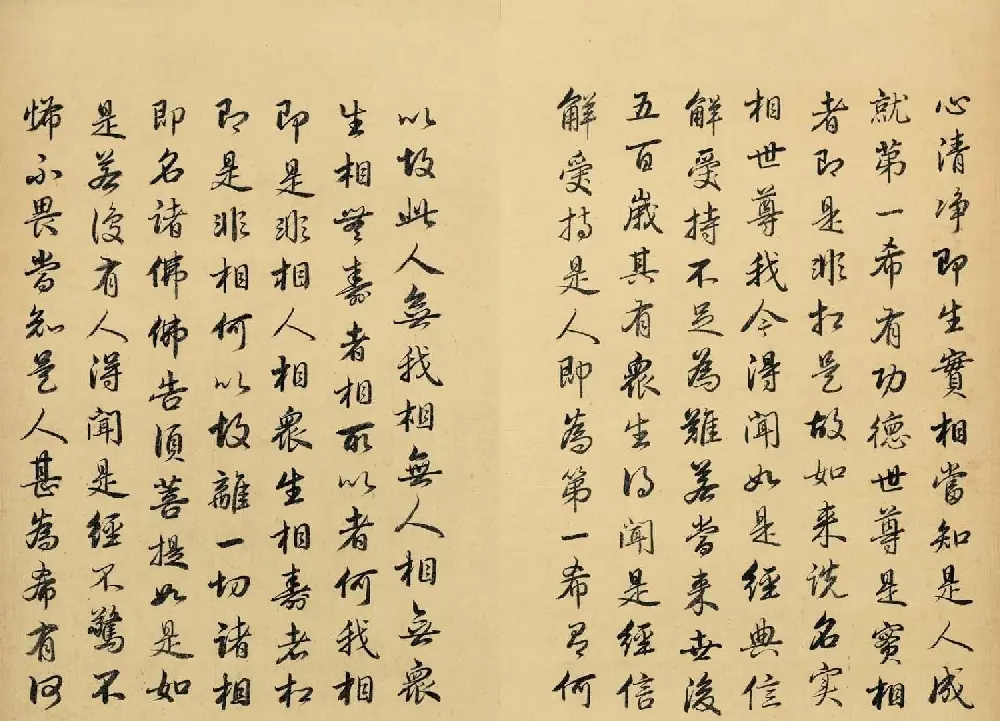 心清净即生實相當知是人成
就第一希有功德世尊是實相
者即是非相是故如来說名实
相世尊我今得聞如是經典信
解受持不足為難若當来世後
五百歲其有衆生得聞是經信
解受持是人即為第一希有何
以故此人無我相無人相無衆
生相無壽者相所以者何我相
即是非相人相衆生相壽者相
即是非相何以故離一切諸相
即名諸佛佛告須菩提如是如
是若復有人得聞是經不驚不
怖不畏當知是人甚為希有何